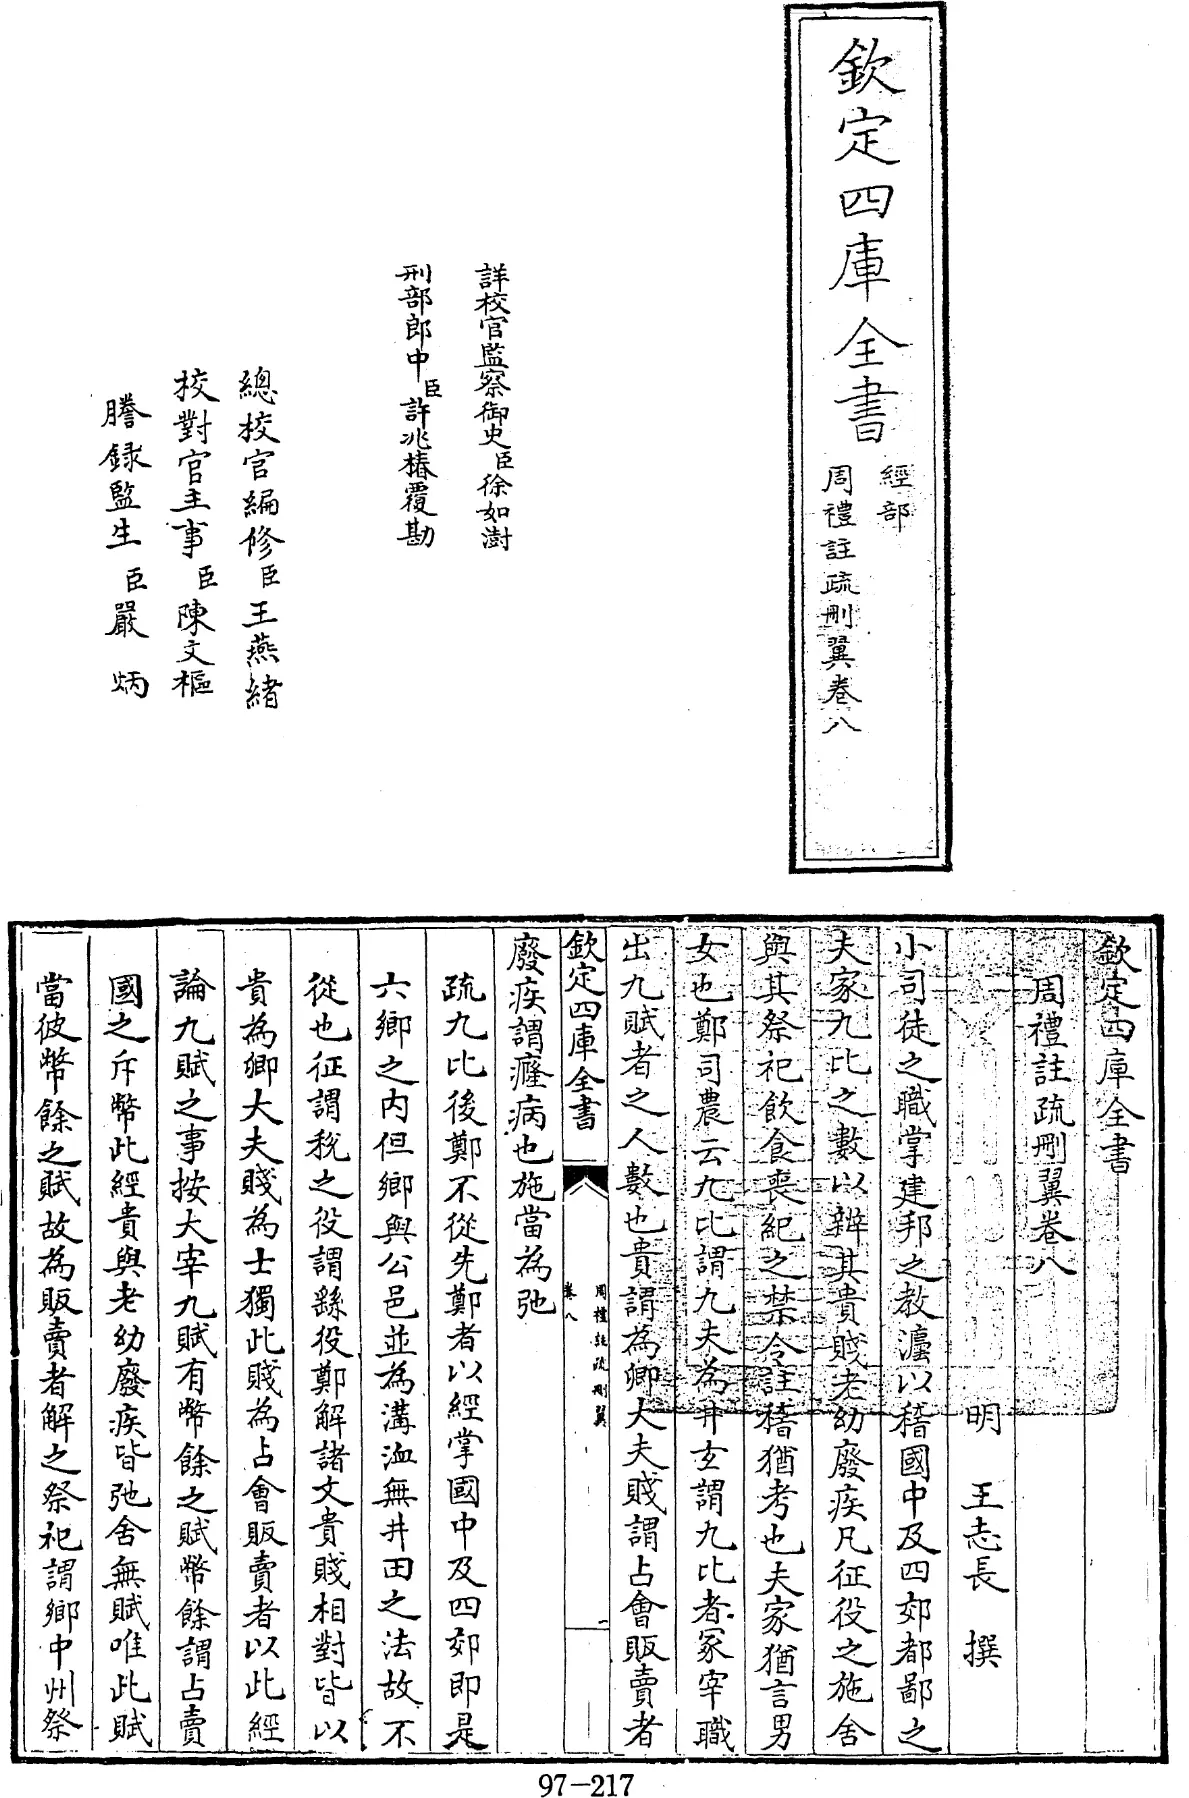 欽定四庫全書
經部
周禮註疏刪翼卷八
詳校官監察御史臣徐如澍
刑部郎中臣許兆椿覆勘
總校官編修臣王燕緒
校對官主事臣陳文樞
謄録監生臣嚴炳
欽定四庫全書
周禮註疏刪翼卷八
明 王志長 撰
小司徒之職掌建邦之教灋以稽國中及四郊都鄙之
夫家九比之數以辨其貴賤老幼廢疾凡征役之施舍
與其祭祀飲食喪紀之禁令註稽猶考也夫家猶言男
女也鄭司農云九比謂九夫為井玄謂九比者冢宰職
出九賦者之人數也貴謂為卿大夫賤謂占會販賣者
欽定四庫全書
周禮註疏刪翼
卷八
一
廢疾謂癃病也施當為弛
疏九比後鄭不從先鄭者以經掌國中及四郊即是
六鄉之内但鄉與公邑並為溝洫無井田之法故不
從也征謂稅之役謂繇役鄭解諸文貴賤相對皆以
貴為卿大夫賤為士獨此賤為占會販賣者以此經
論九賦之事按大宰九賦有幣餘之賦幣餘謂占賣
國之斥幣此經貴與老幼廢疾皆弛舍無賦唯此賦
當彼幣餘之賦故為販賣者解之祭祀謂鄉中州祭
97-217